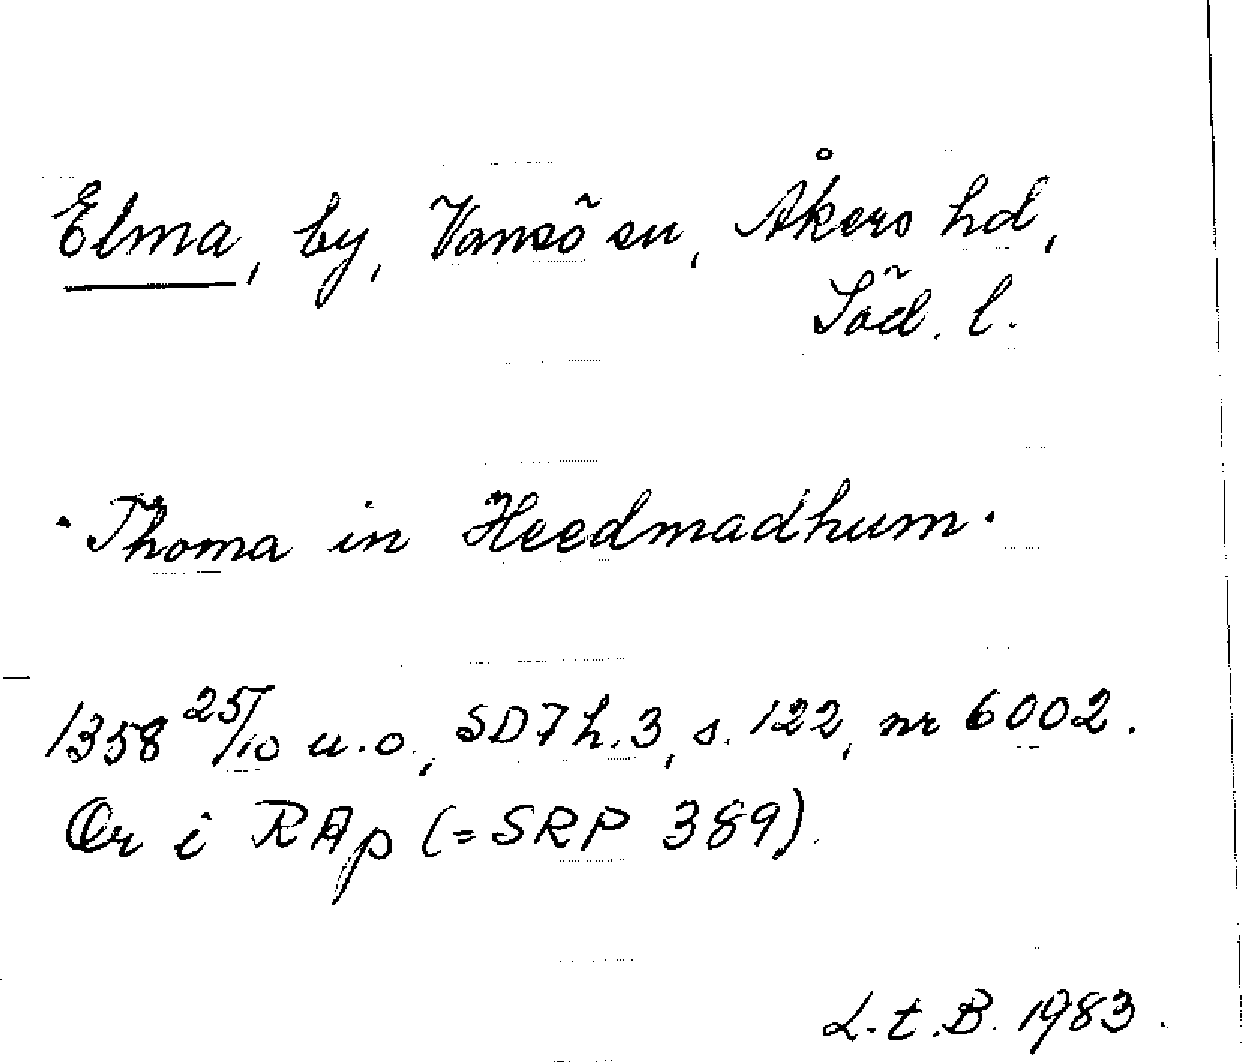 Elma, by, Vansö sn, Åkers hd,
Söd. l.
"Thoma in Heedmadhum"
1358 25/10 u.o., SD7 h.3, s. 122, nr 6002.
Or i RAp (=SRP 389).
L.t.B. 1983.